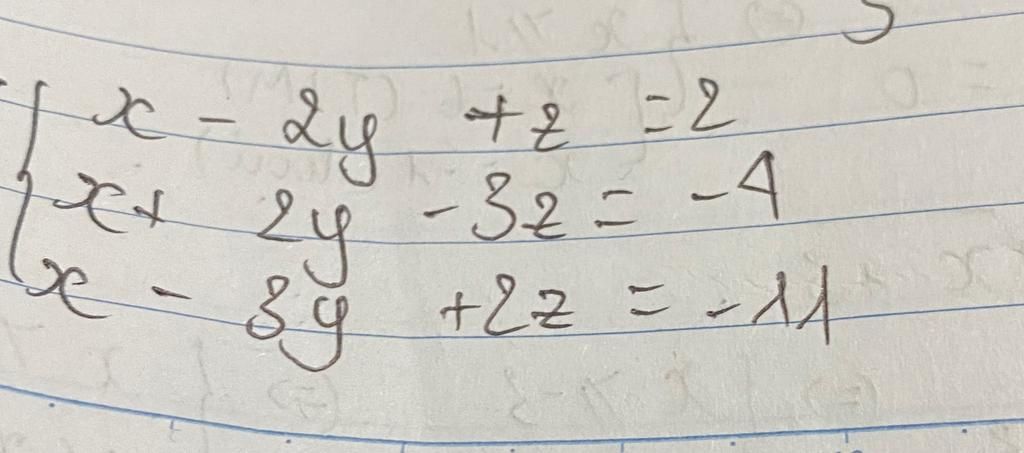 x - 2y + z = 2
x + 2y - 3z = -4
x - 3y + 2z = -11